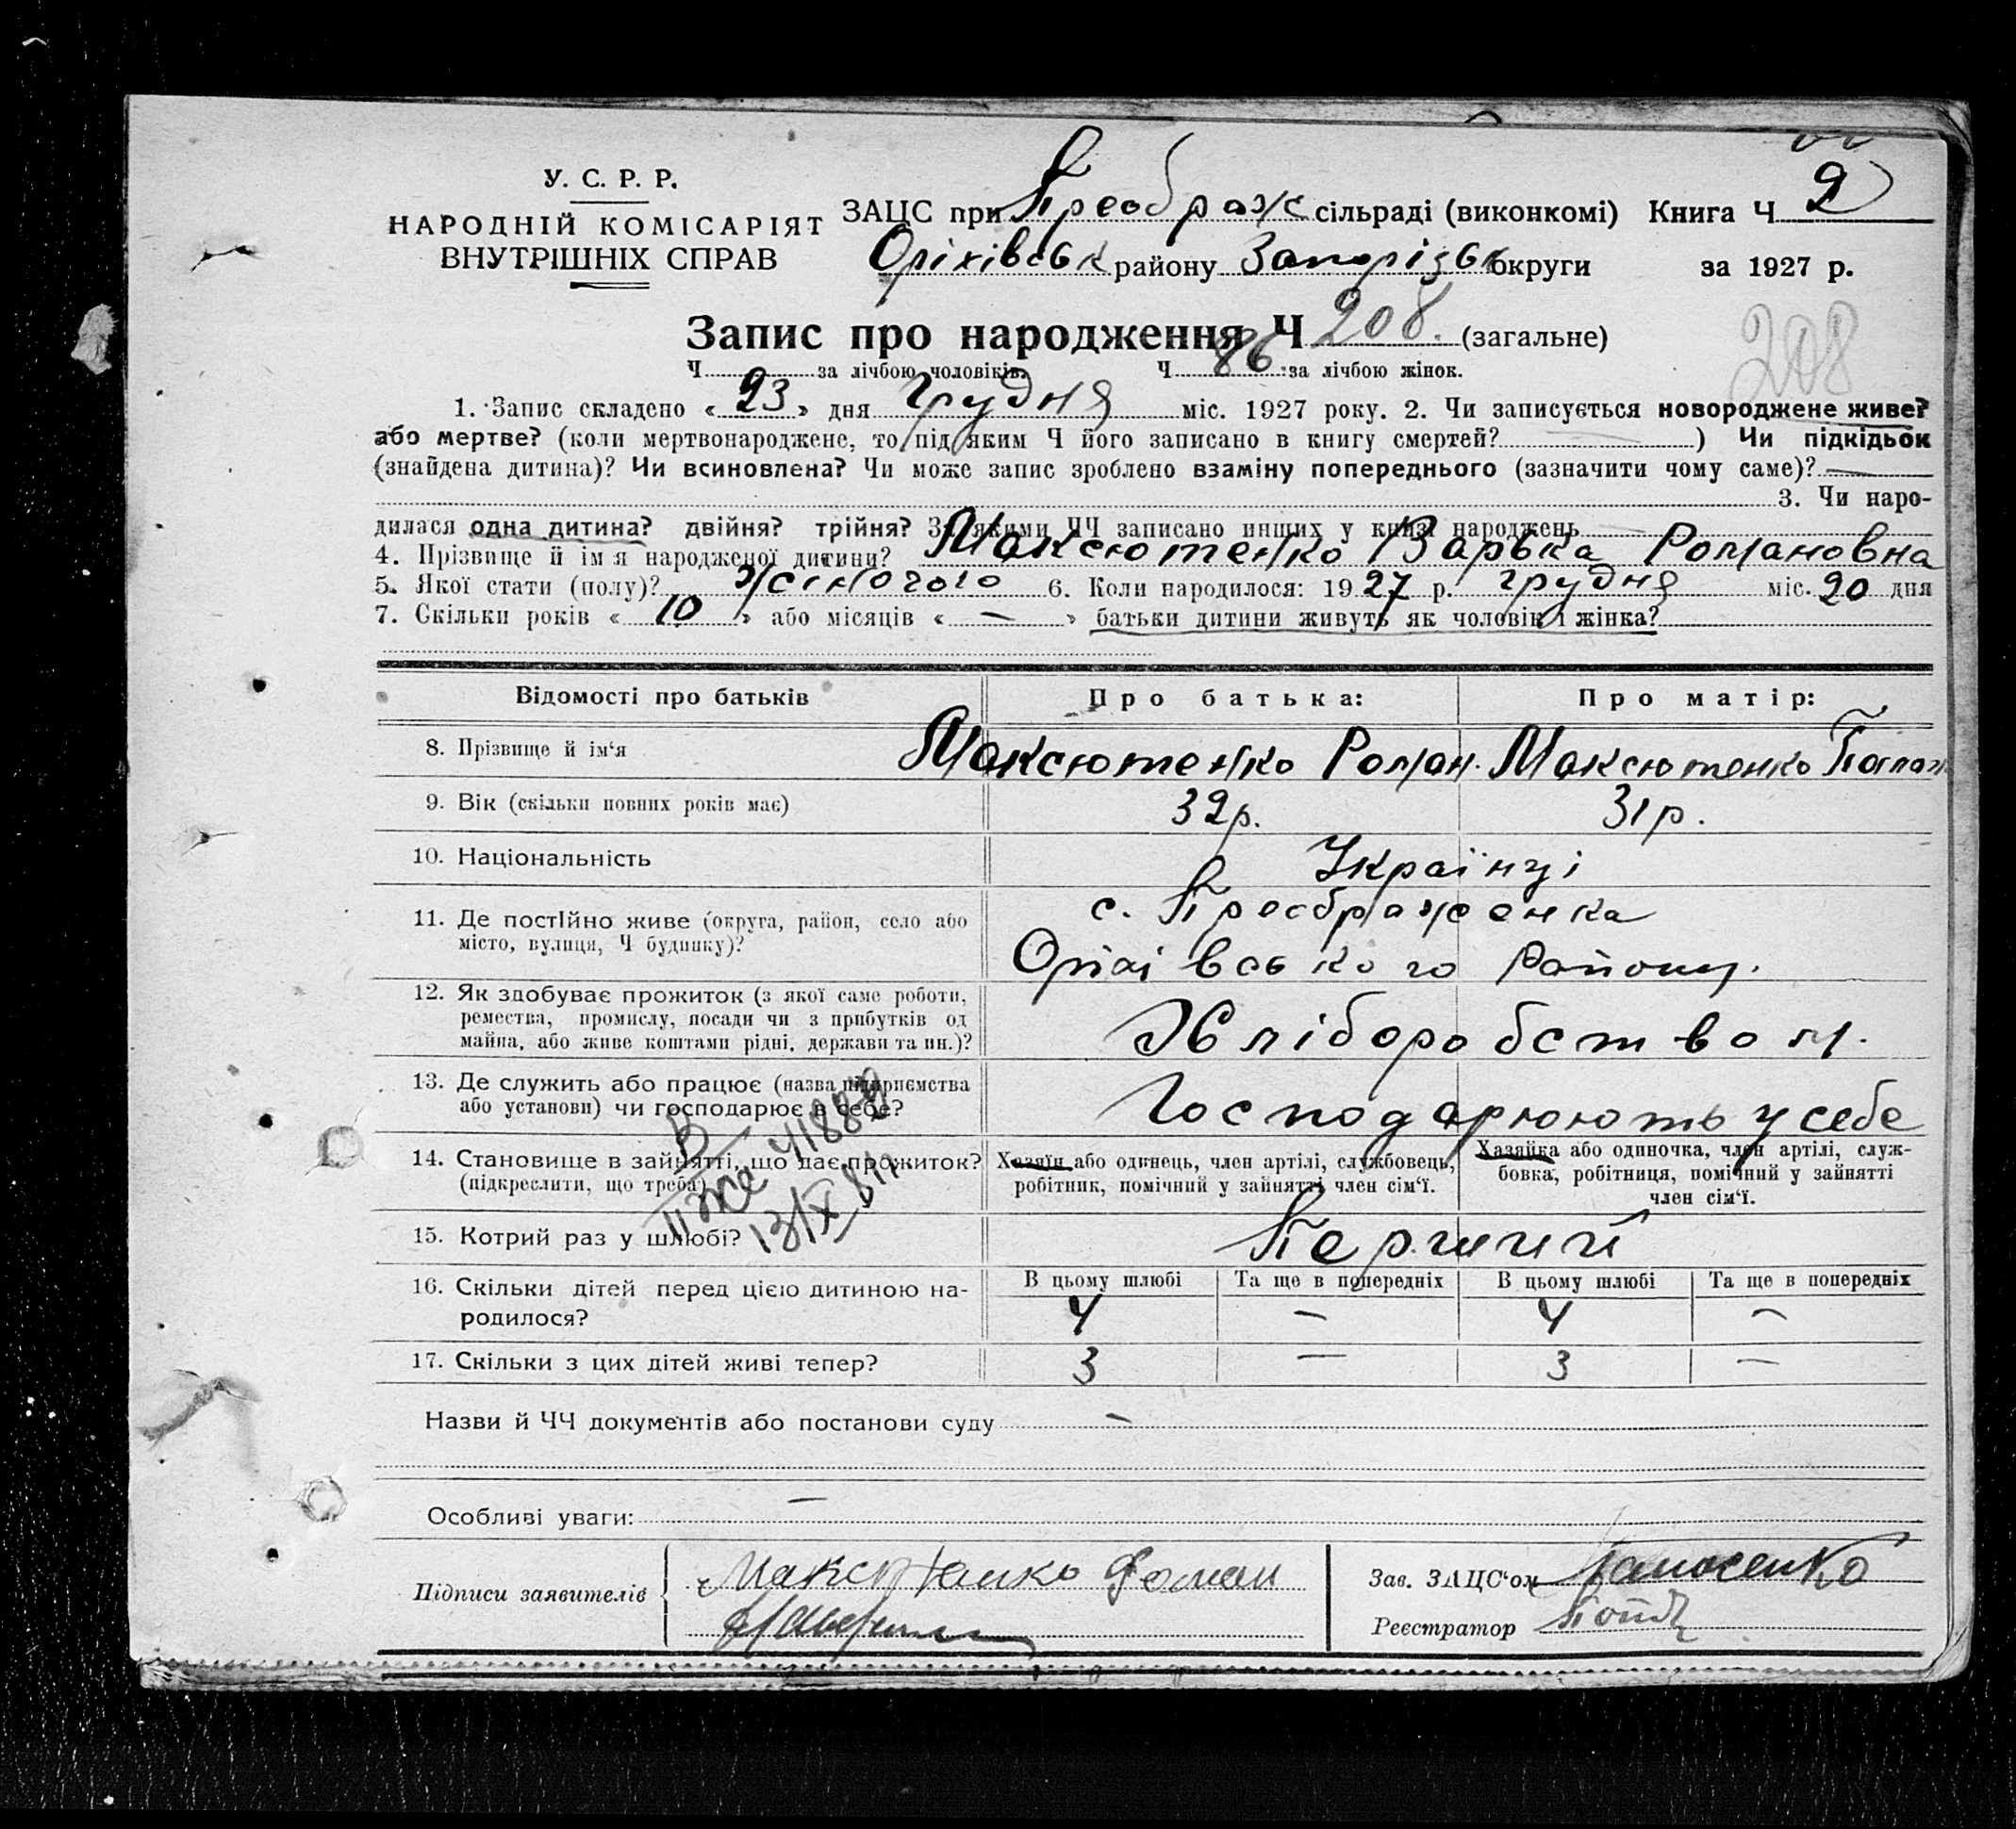 У. С. Р. Р.
НАРОДНІЙ КОМІСАРІЯТ
ВНУТРІШНІХ СПРАВ
ЗАЦС при Преображ сільраді (виконкомі) Книга Ч 2
Оріхівськ району Запорізьк округи за 1927 р.
Запис про народження Ч 208. (загальне)
208
Ч за лічбою чоловіків. Ч 86 за лічбою жінок.
1. Запис складено « 23 » дня грудня міс. 1927 року. 2. Чи записується новороджене живе?
або мертве? (коли мертвонароджене, то під яким Ч його записано в книгу смертей? — ) Чи підкідьок
(знайдена дитина)? Чи всиновлена? Чи може запис зроблено взаміну попереднього (зазначити чому саме)? —
3. Чи наро-
дилася одна дитина? двійня? трійня? За якими ЧЧ записано инших у книзі народжень —
4. Прізвище й ім'я народженої дитини? Максютенко Варька Романовна
5. Якої стати (полу)? жіночого 6. Коли народилося: 1927 р. грудня міс. 20 дня
7. Скільки років « 10 » або місяців « — » батьки дитини живуть як чоловік і жінка?
Відомості про батьків Про батька: Про матір:
8. Прізвище й ім'я Максютенко Роман. Максютенко
9. Вік (скільки повних років має) 32р. 31р.
10. Національність Українці
11. Де постійно живе (округа, район, село або с. Преображенка
місто, вулиця, Ч будинку)? Оріхівського Району.
12. Як здобуває прожиток (з якої саме роботи,
ремества, промислу, посади чи з прибутків од Хліборобством.
майна, або живе коштами рідні, держави та ин.)?
13. Де служить або працює (назва підприємства
або установи) чи господарює в себе? Господарюють у себе
14. Становище в зайнятті, що дає прожиток? Хазяїн або одинець, член артілі, службовець, Хазяйка або одиночка, член артілі, служ-
(підкреслити, що треба) робітник, помічний у зайнятті член сім'ї. бовка, робітниця, помічний у зайнятті
член сім'ї.
15. Котрий раз у шлюбі? Перший
16. Скільки дітей перед цією дитиною на- В цьому шлюбі Та ще в попередніх В цьому шлюбі Та ще в попередніх
родилося? 4 — 4 —
17. Скільки з цих дітей живі тепер? 3 — 3 —
Назви й ЧЧ документів або постанови суду —
Особливі уваги: —
Підписи заявителів Роман
Зав. ЗАЦС'ом
Реєстратор